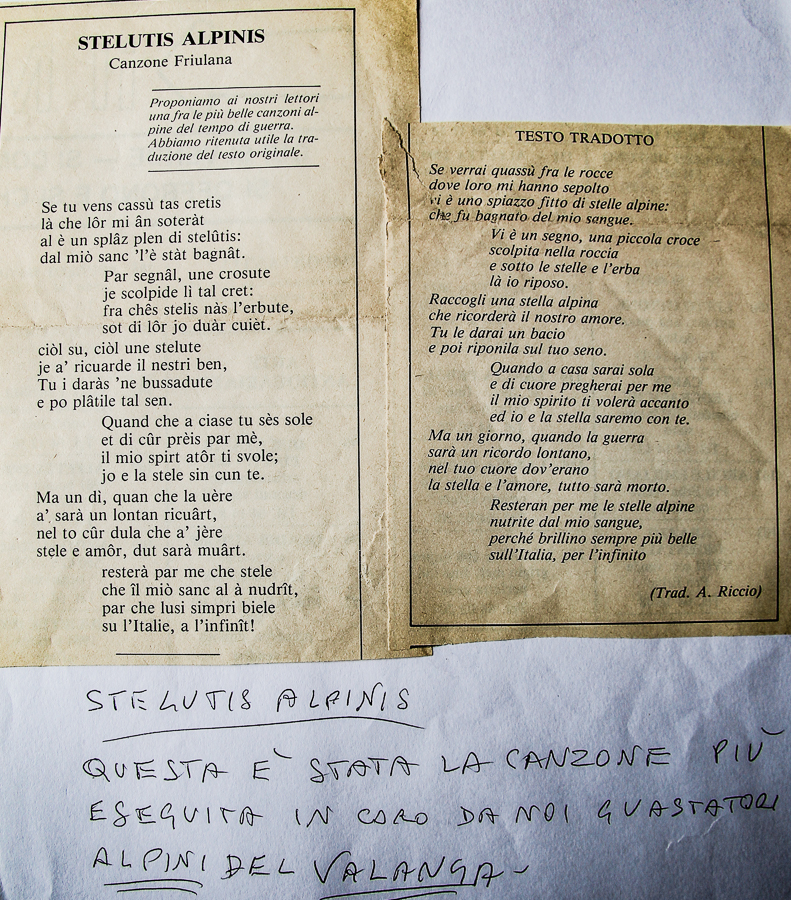 STELUTIS ALPINIS
Canzone Friulana
Proponiamo ai nostri lettori
una fra le più belle canzoni al-
pine del tempo di guerra.
Abbiamo ritenuta utile la tra-
duzione del testo originale.
Se tu vens cassù tas cretis
là che lôr mi ân soteràt
al è un splâz plen di stelûtis:
dal miò sanc 'l'è stàt bagnât.
Par segnâl, une crosute
je scolpide lì tal cret:
fra chês stelis nàs l'erbute,
sot di lôr jo duàr cuièt.
ciòl su, ciòl une stelute
je a' ricuarde il nestri ben,
Tu i daràs 'ne bussadute
e po plâtile tal sen.
Quand che a ciase tu sès sole
et di cûr prèis par mè,
il mio spirt atôr ti svole;
jo e la stele sin cun te.
Ma un dì, quan che la uère
a' sarà un lontan ricuârt,
nel to cûr dula che a' jère
stele e amôr, dut sarà muârt.
resterà par me che stele
che îl miò sanc al à nudrît,
par che lusi simpri biele
su l'Italie, a l'infinît!
TESTO TRADOTTO
Se verrai quassù fra le rocce
dove loro mi hanno sepolto
vi è uno spiazzo fitto di stelle alpine:
che fu bagnato del mio sangue.
Vi è un segno, una piccola croce
scolpita nella roccia
e sotto le stelle e l'erba
là io riposo.
Raccogli una stella alpina
che ricorderà il nostro amore.
Tu le darai un bacio
e poi riponila sul tuo seno.
Quando a casa sarai sola
e di cuore pregherai per me
il mio spirito ti volerà accanto
ed io e la stella saremo con te.
Ma un giorno, quando la guerra
sarà un ricordo lontano,
nel tuo cuore dov'erano
la stella e l'amore, tutto sarà morto.
Resteran per me le stelle alpine
nutrite dal mio sangue,
perché brillino sempre più belle
sull'Italia, per l'infinito
(Trad. A. Riccio)
STELUTIS ALPINIS
QUESTA E' STATA LA CANZONE PIÙ
ESEGUITA IN CORO DA NOI GUASTATORI
ALPINI DEL VALANGA -